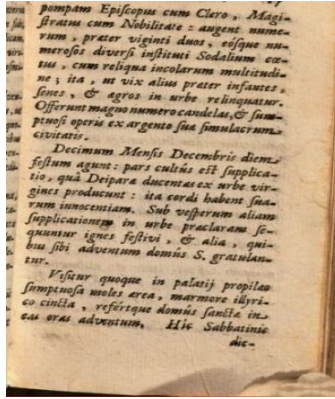 pompam Episcopus cum Clero, Magi-
ſtratus cum Nobilitate: augent nume-
rum, præter viginti duos, eóſque nu-
meroſos diverſi inſtituti Sodalium cœ-
tus, cum reliqua incolarum multitudi-
ne; ita, ut vix alius præter infantes,
ſenes, & agros in urbe relinquatur.
Offerunt magno numero candelas, & ſum-
ptuoſi operis ex argento ſuæ ſimulacrum
civitatis.
Decimum Menſis Decembris diem
feſtum agunt: pars cultûs eſt ſupplica-
tio, quâ Deiparæ ducentas ex urbe vir-
gines producunt: ita cordi habent ſua-
rum innocentiam. Sub veſperum aliam
ſupplicationem in urbe præclaram ſe-
quuntur ignes feſtivi, & alia, qui-
bus ſibi adventum domûs S. gratulan-
tur.
Viſitur quoque in palatij propilæo
ſumptuoſa moles ærea, marmore illyri-
co cincta, refértque domûs ſanctæ in
eas oras adventum. Hic Sabbatinis
die-